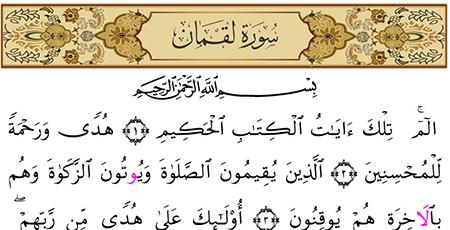 سُورَةُ لُقْمَانَ
بِسْمِ اللَّهِ الرَّحْمَٰنِ الرَّحِيمِ
الٓمٓ ۚ تِلْكَ ءَايَٰتُ ٱلْكِتَٰبِ ٱلْحَكِيمِ ﴿١﴾ هُدًى وَرَحْمَةً
لِّلْمُحْسِنِينَ ﴿٢﴾ ٱلَّذِينَ يُقِيمُونَ ٱلصَّلَوٰةَ وَيُوتُونَ ٱلزَّكَوٰةَ وَهُم
بِٱلَاخِرَةِ هُمْ يُوقِنُونَ ﴿٣﴾ أُوْلَٰٓئِكَ عَلَىٰ هُدًى مِّن رَّبِّهِمْ ۖ